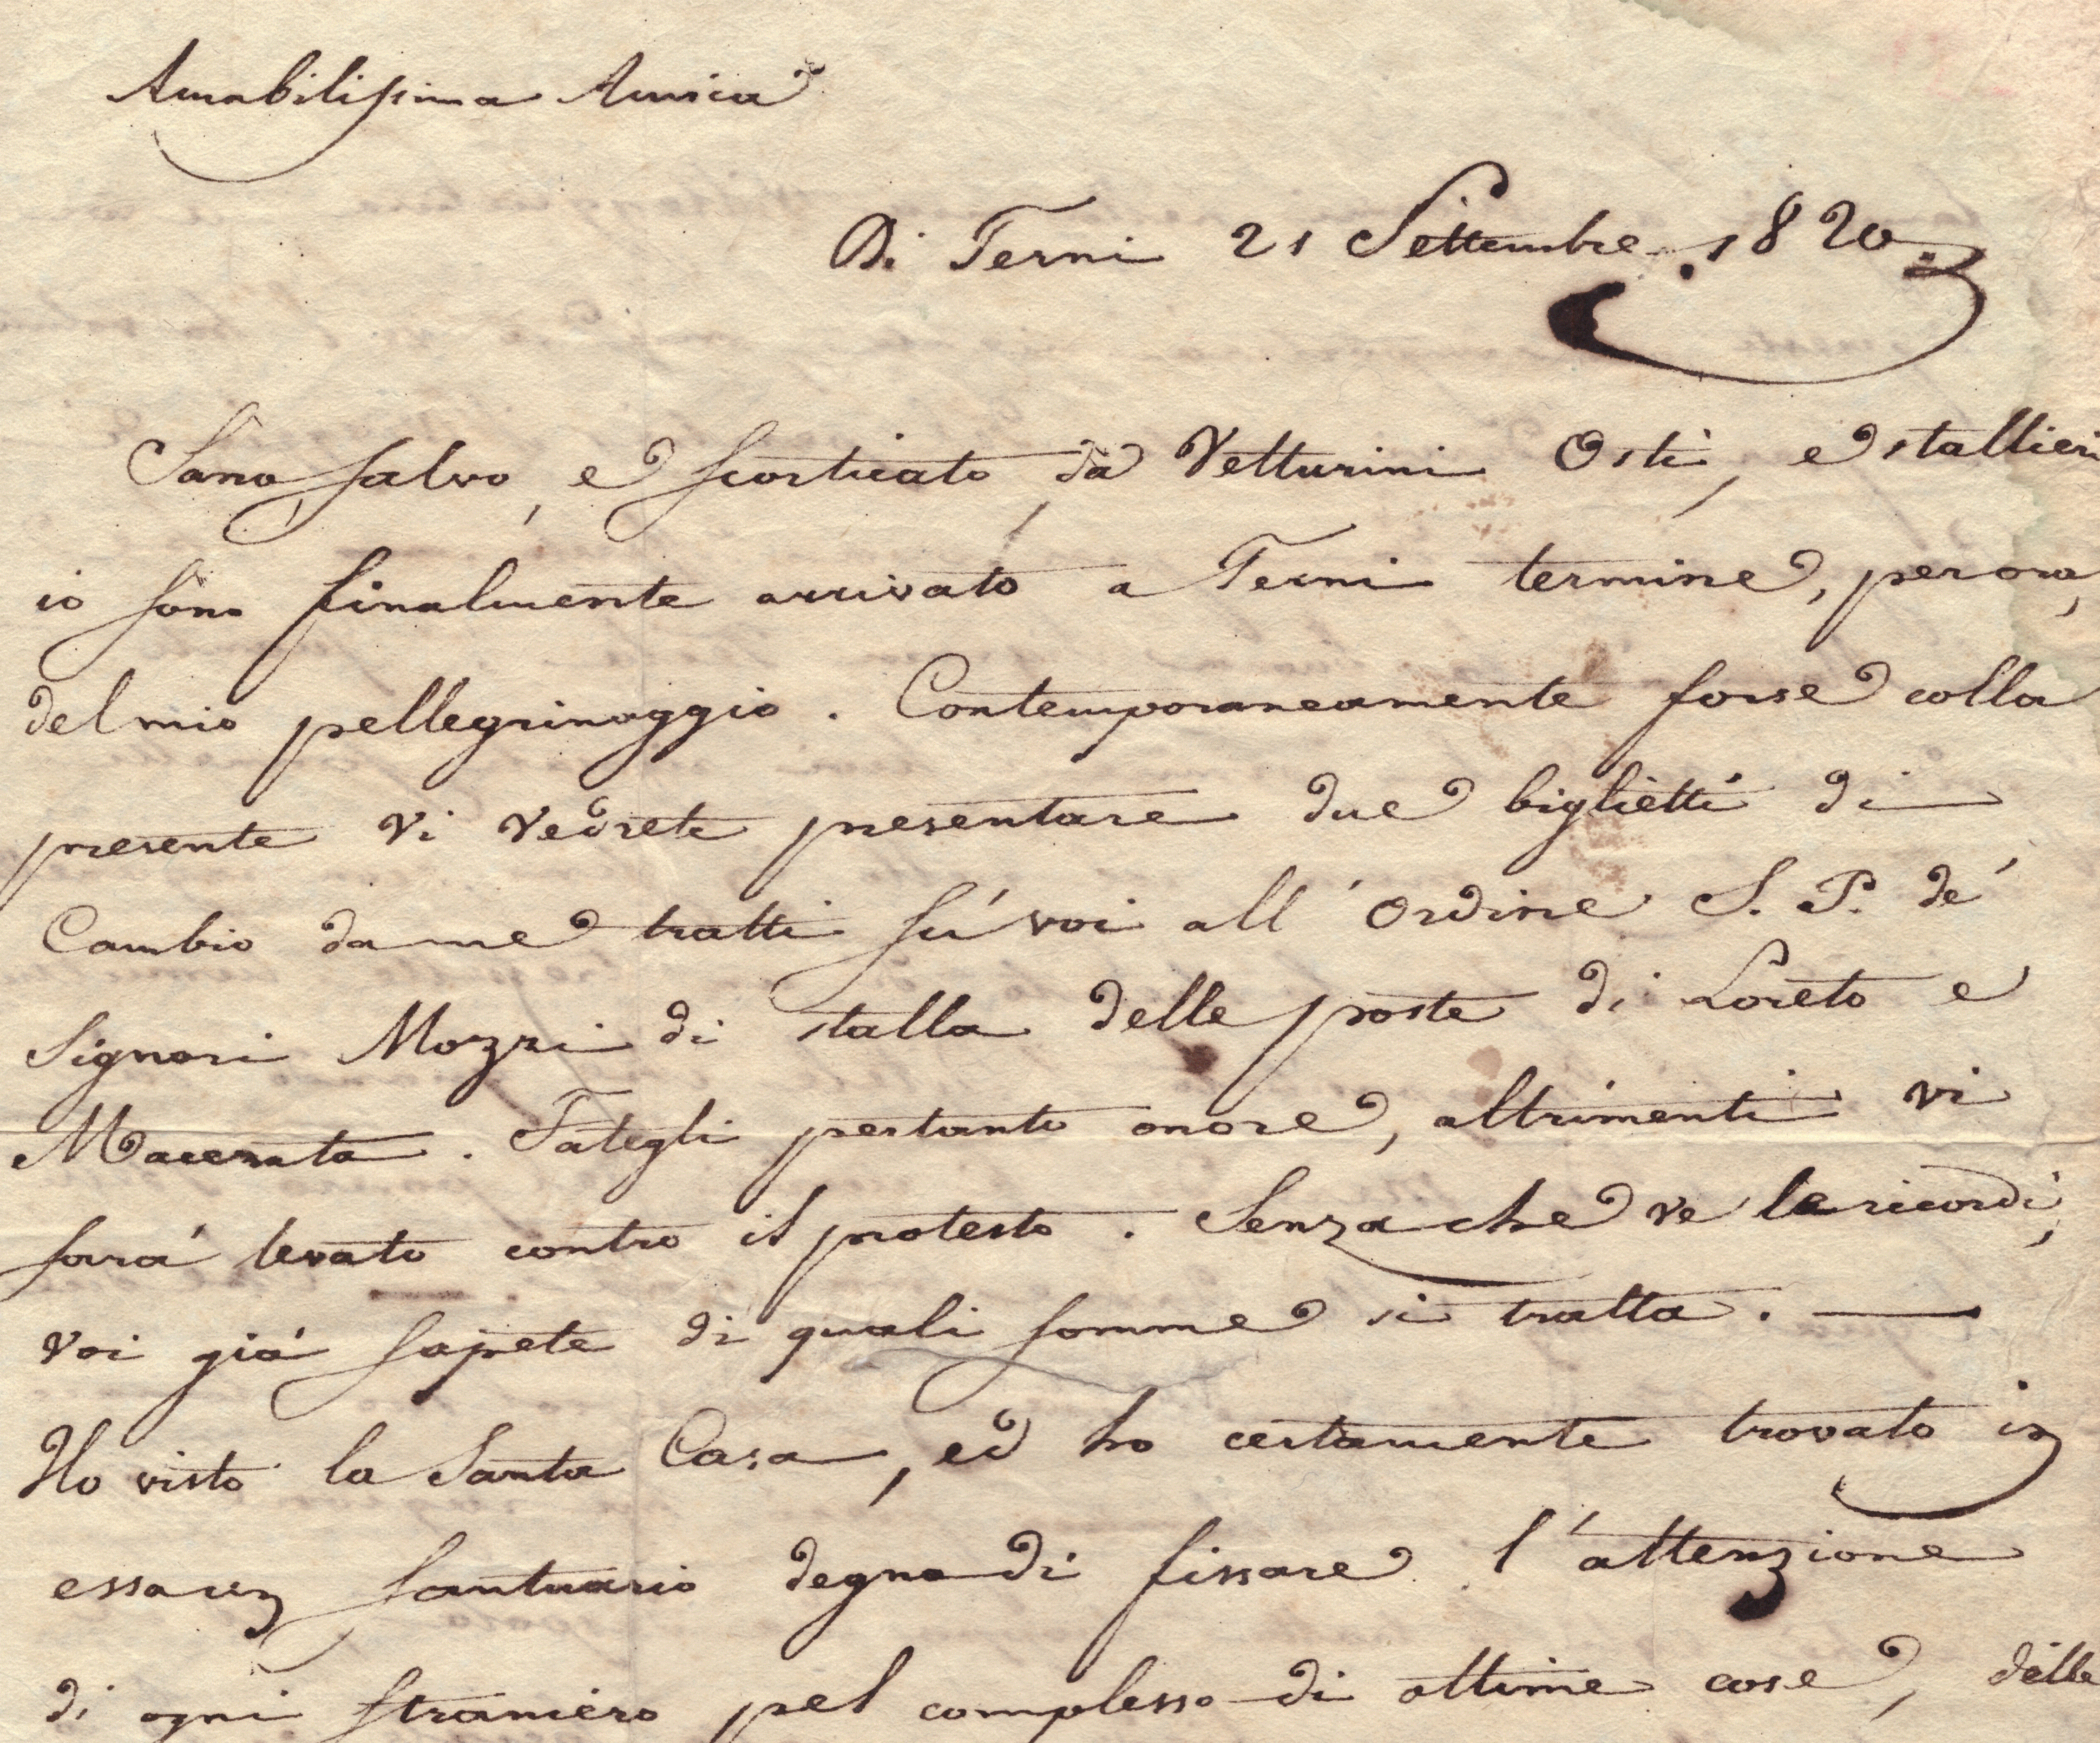 Amabilissima Amica
Di Terni 21 Settembre 1820.
Sano, salvo, e scorticato da Vetturini Osti, e stallieri
io sono finalmente arrivato a Terni termine, per ora,
del mio pellegrinaggio. Contemporaneamente forse colla
presente vi vedrete presentare due biglietti di
Cambio da me tratti sú voi all'Ordine S. P. de'
Signori Mozzi di stalla delle poste di Loreto e
Macerata. Fategli pertanto onore, altrimenti vi
sará levato contro il protesto. Senza che ve le ricordi,
voi giá sapete di quali somme si tratta. —
Ho visto la Santa Casa, ed ho certamente trovato in
essa un santuario degno di fissare l'attenzione
di ogni straniero pel complesso di ottime cose, delle